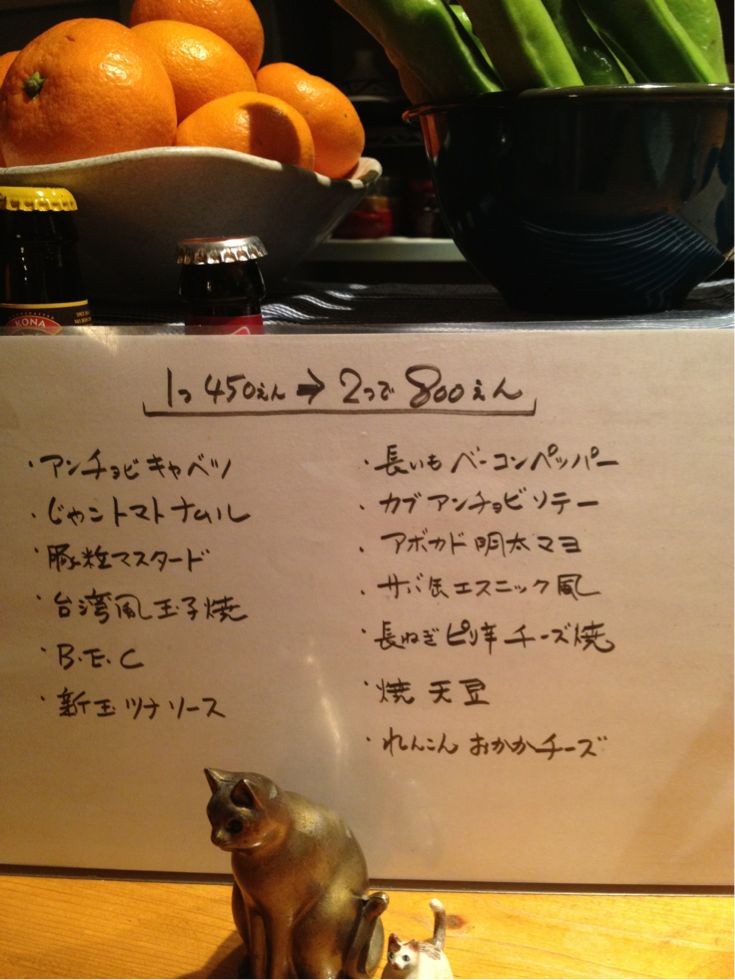 KONA
1つ 450えん → 2つで 800えん
・アンチョビキャベツ
・じゃこトマトナムル
・豚粒マスタード
・台湾風玉子焼
・B.E.C
・新玉ツナソース
・長いもベーコンペッパー
・カブアンチョビソテー
・アボカド明太マヨ
・サバ缶エスニック風
・長ねぎピリ辛チーズ焼
・焼天豆
・れんこんおかかチーズ